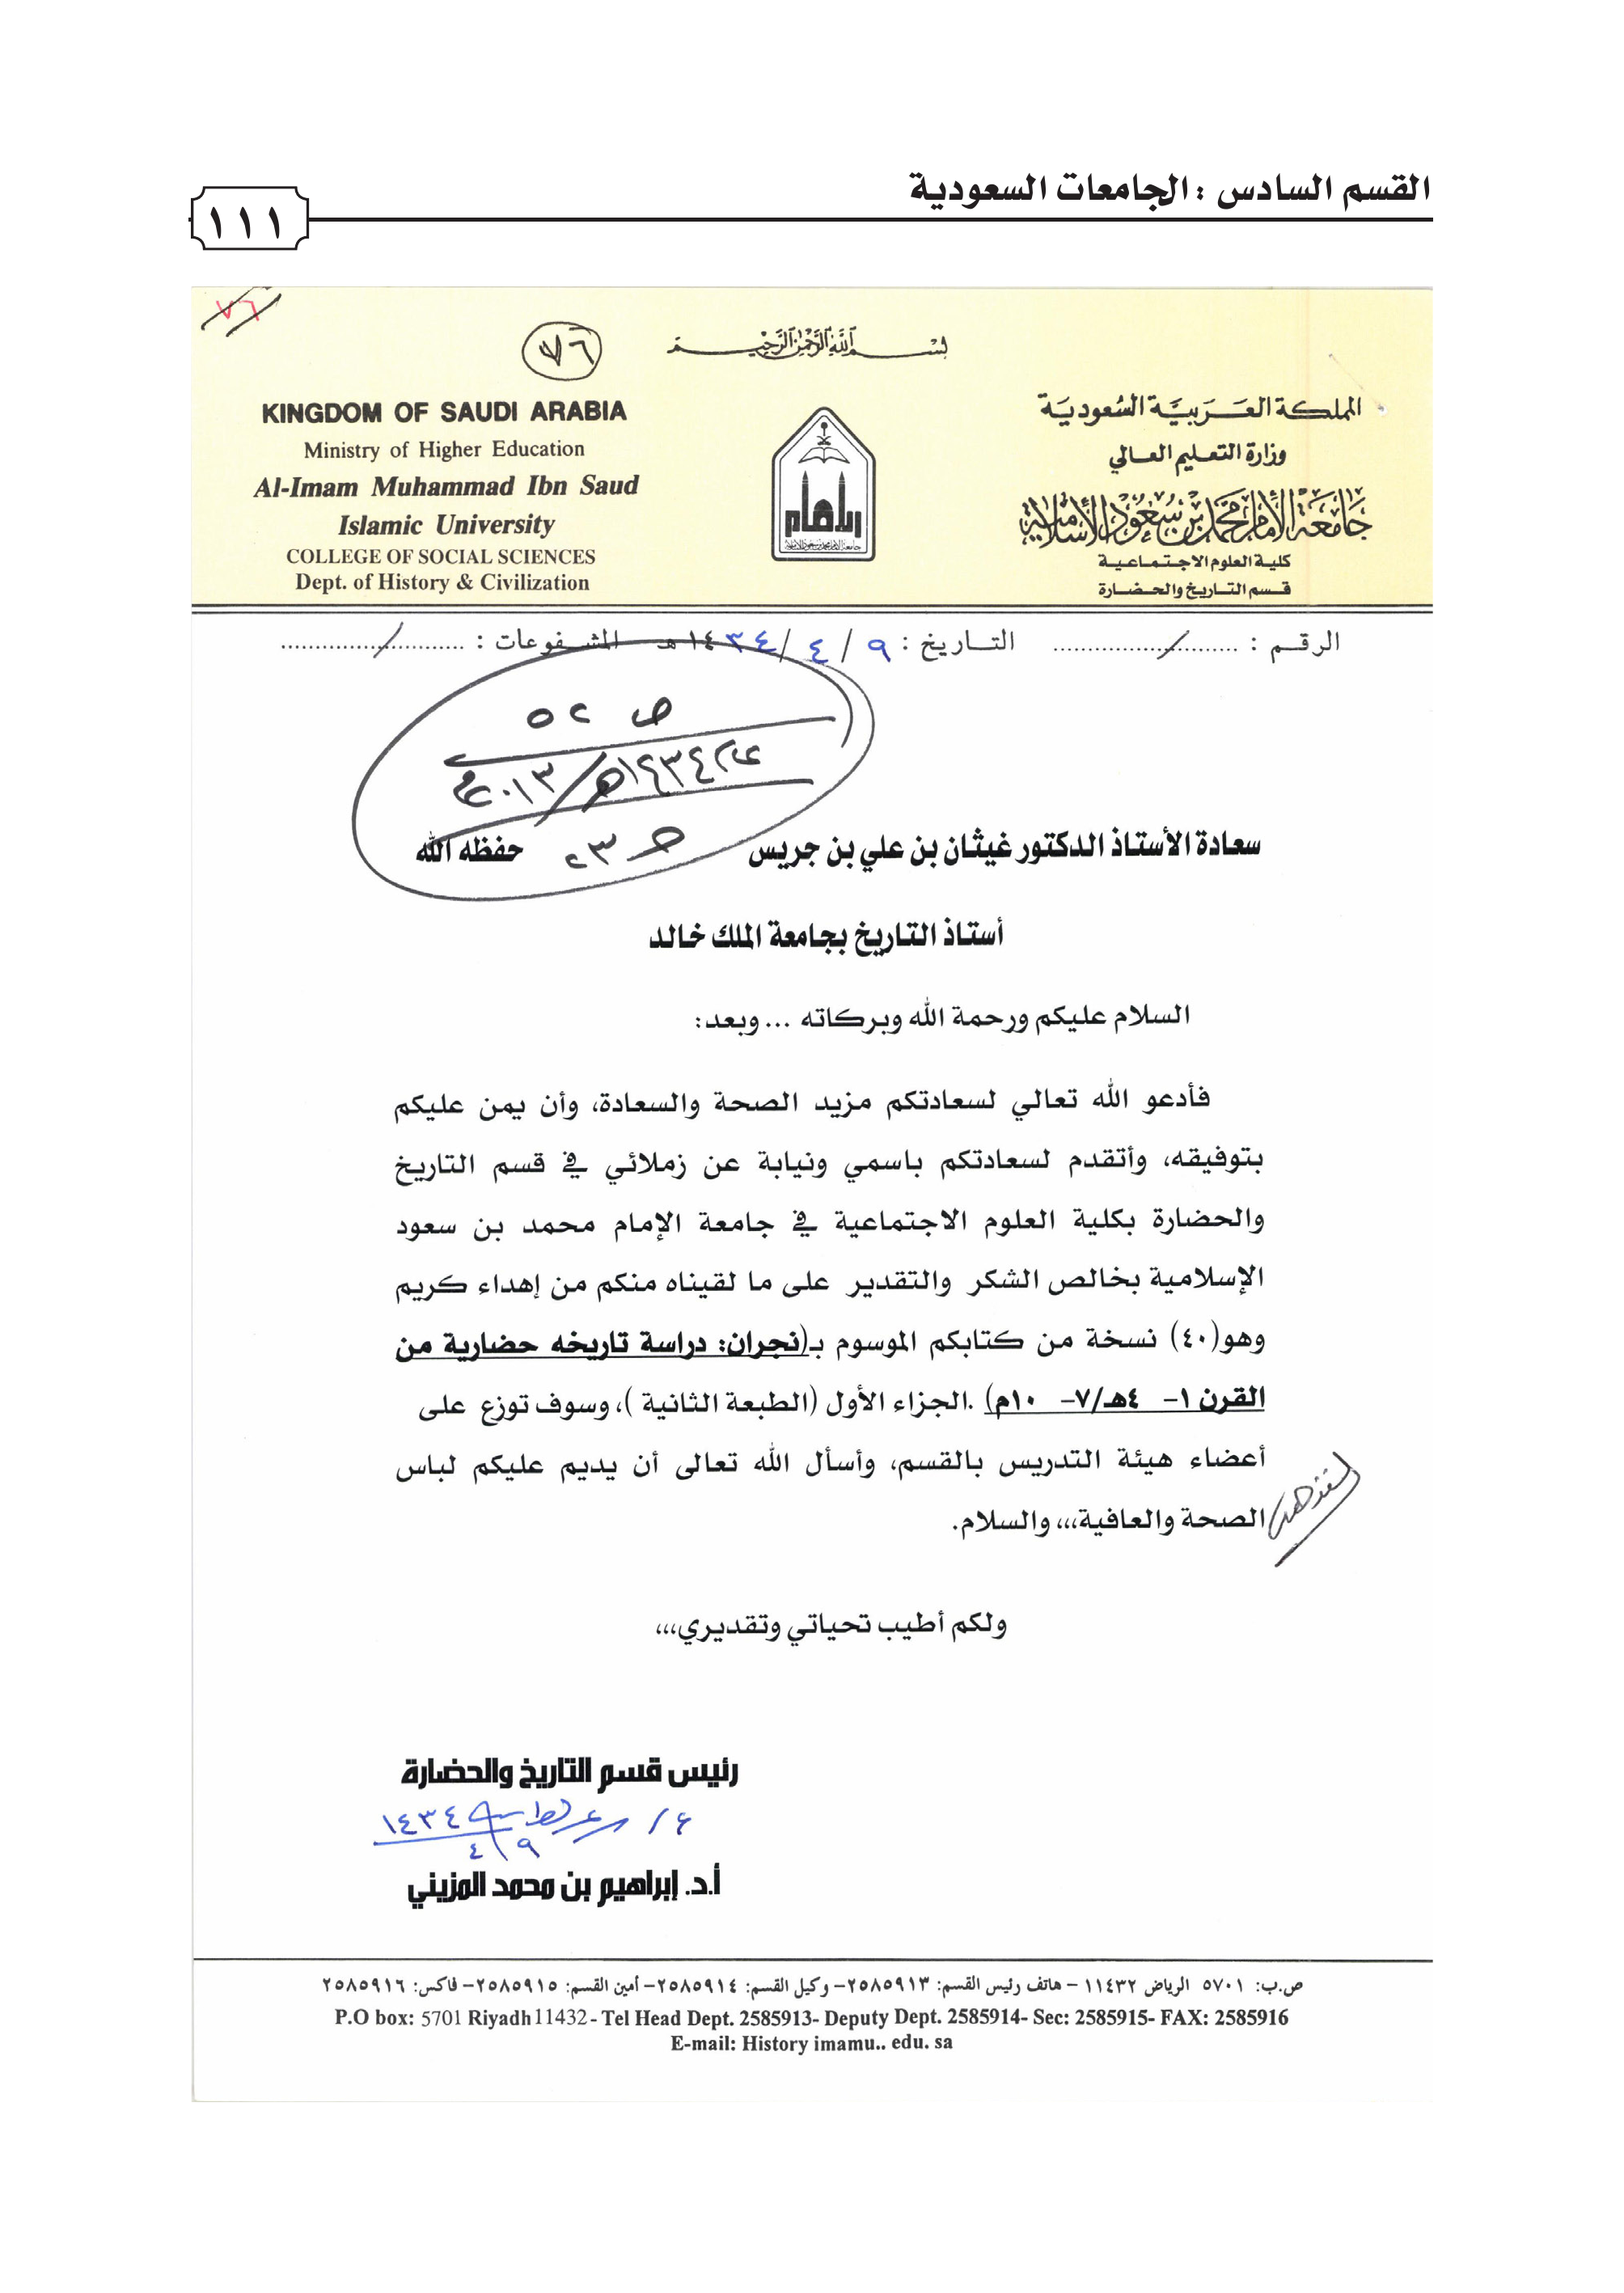 القسم السادس : الجامعات السعودية
١١١
٧٦
٧٦
بسم الله الرحمن الرحيم
المملكة العربية السعودية
وزارة التعليم العالي
جامعة الإمام محمد بن سعود الإسلامية
كلية العلوم الاجتماعية
قسم التاريخ والحضارة
KINGDOM OF SAUDI ARABIA
Ministry of Higher Education
Al-Imam Muhammad Ibn Saud
Islamic University
COLLEGE OF SOCIAL SCIENCES
Dept. of History & Civilization
الإمام
جامعة الإمام محمد بن سعود الإسلامية
الرقم : ........../.......... التاريخ : ٩ / ٤ / ١٤٣٤ هـ المشفوعات : ........../..........
ص ٥٢
١٤٣٤هـ/٢٠١٣م
سعادة الأستاذ الدكتور غيثان بن علي بن جريس حفظه الله
أستاذ التاريخ بجامعة الملك خالد
السلام عليكم ورحمة الله وبركاته ... وبعد:
فأدعو الله تعالي لسعادتكم مزيد الصحة والسعادة، وأن يمن عليكم
بتوفيقه، وأتقدم لسعادتكم باسمي ونيابة عن زملائي في قسم التاريخ
والحضارة بكلية العلوم الاجتماعية في جامعة الإمام محمد بن سعود
الإسلامية بخالص الشكر والتقدير على ما لقيناه منكم من إهداء كريم
وهو(٤٠) نسخة من كتابكم الموسوم بـ(نجران: دراسة تاريخه حضارية من
القرن ١- ٤هـ/٧- ١٠م) .الجزاء الأول (الطبعة الثانية )، وسوف توزع على
أعضاء هيئة التدريس بالقسم، وأسأل الله تعالى أن يديم عليكم لباس
الصحة والعافية،،، والسلام.
ولكم أطيب تحياتي وتقديري،،،
رئيس قسم التاريخ والحضارة
١٤٣٤
٩/٤
أ.د. إبراهيم بن محمد المزيني
ص.ب: ٥٧٠١ الرياض ١١٤٣٢ - هاتف رئيس القسم: ٢٥٨٥٩١٣- وكيل القسم: ٢٥٨٥٩١٤- أمين القسم: ٢٥٨٥٩١٥- فاكس: ٢٥٨٥٩١٦
P.O box: 5701 Riyadh 11432 - Tel Head Dept. 2585913- Deputy Dept. 2585914- Sec: 2585915- FAX: 2585916
E-mail: History imamu.. edu. sa